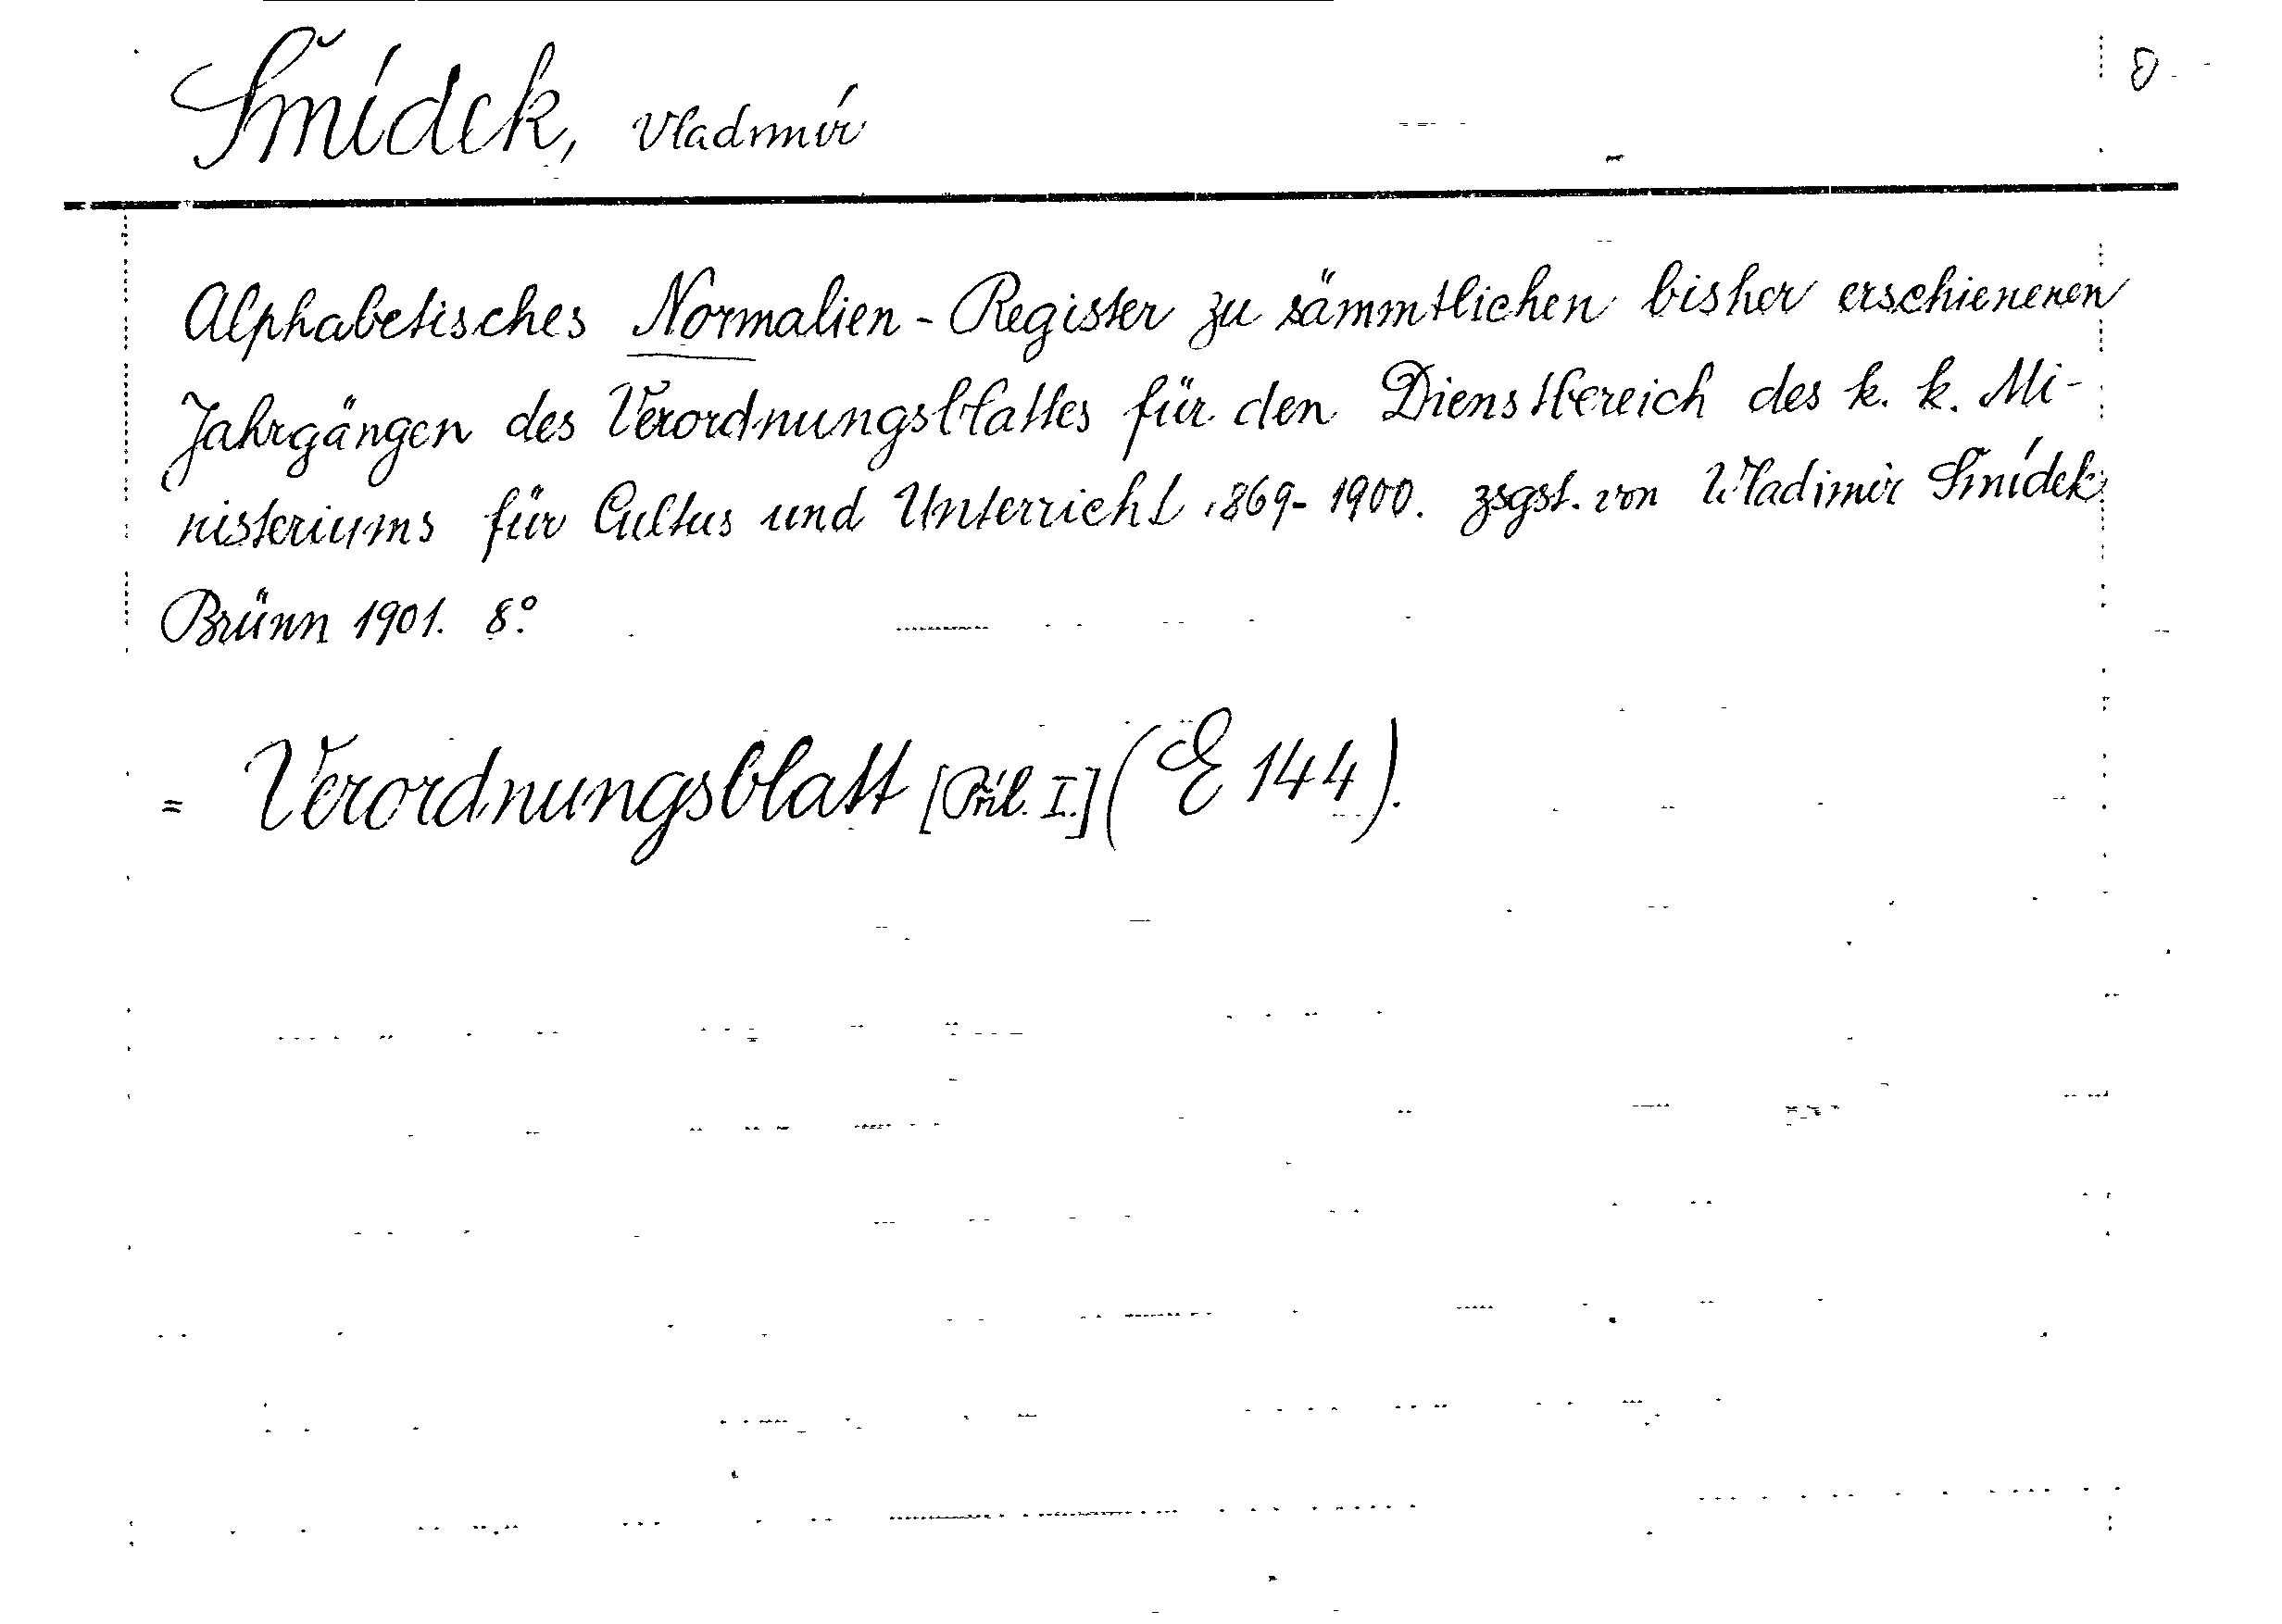 Šmídek, Vladimír
Alphabetisches Normalien-Register zu sämmtlichen bisher erschienenen
Jahrgängen des Verordnungsblattes für den Dienstbereich des k. k. Mi-
nisteriums für Cultus und Unterricht 1869-1900. zsgst. von Wladimir Šmídek
Brünn 1901. 8°
= Verordnungsblatt [Příl. I.] (E 144).